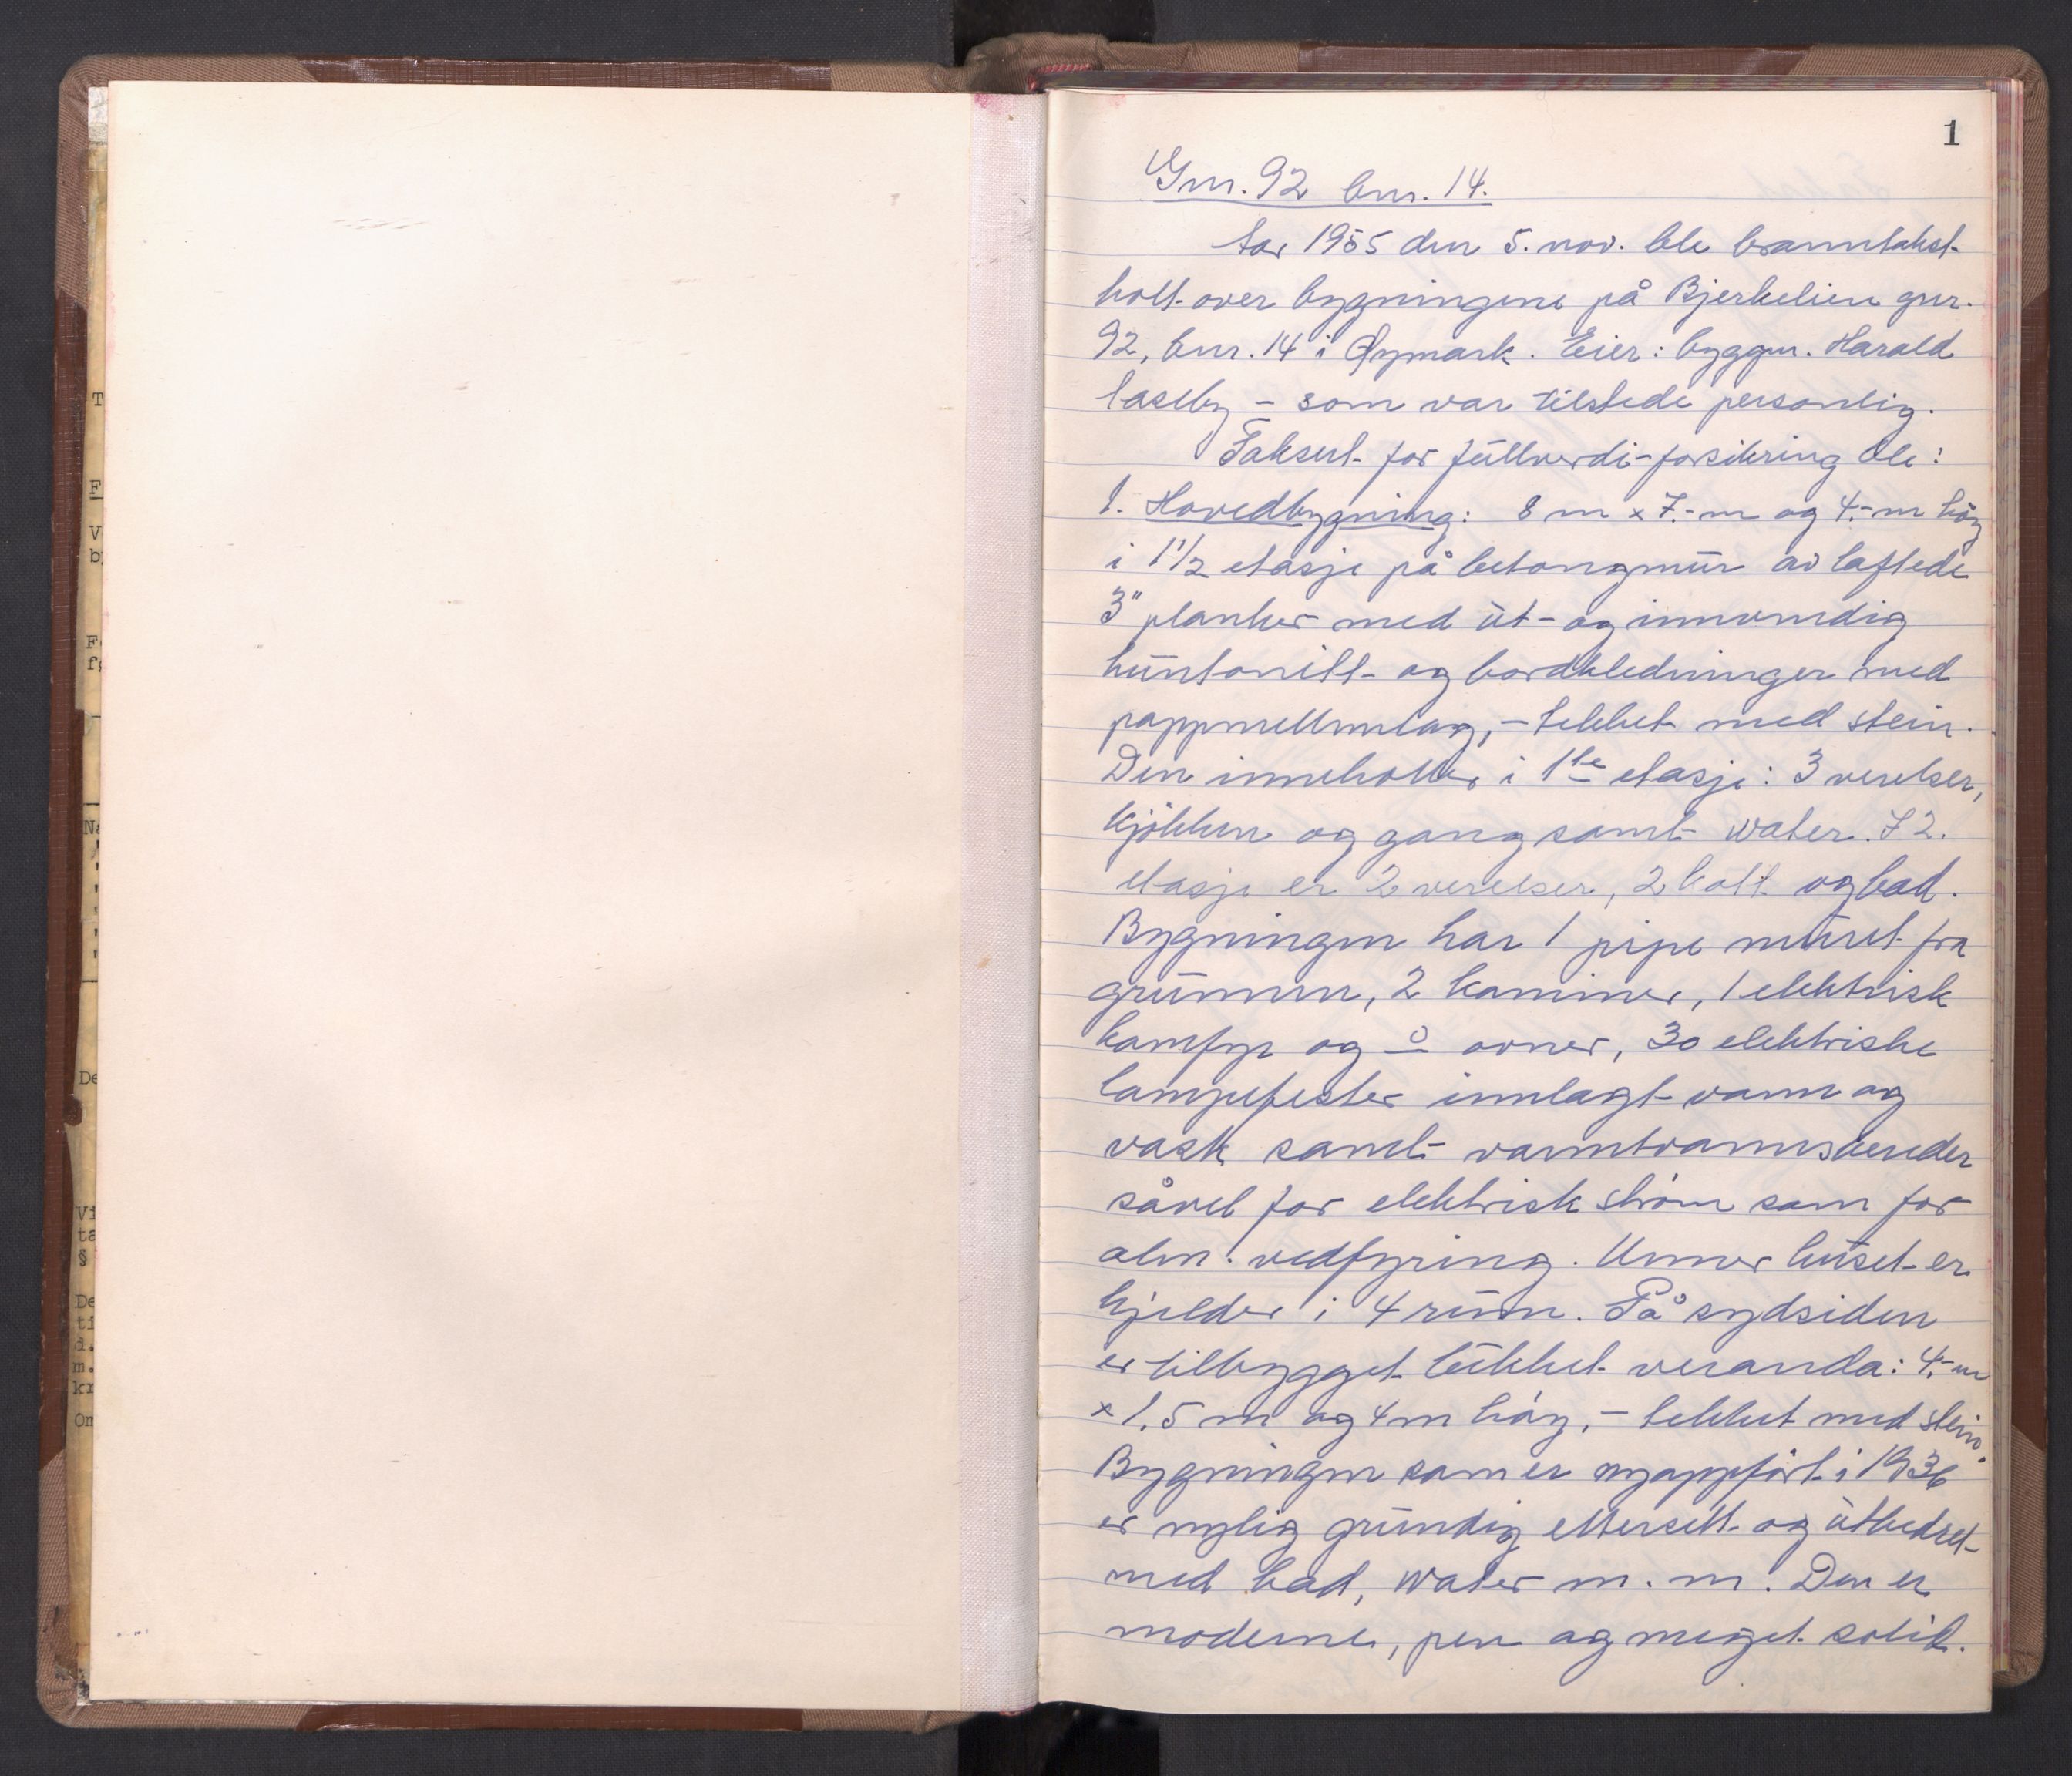 1
Gnr. 92 bnr. 14.
År 1955 den 5. nov. ble branntakst
holt over bygningene på Bjerkelien gnr.
92, bnr. 14 i Øymark. Eier: byggm. Harald
Taseby – som var tilstede personlig.
Taksert for fullverdi-forsikring ble:
1. Hovedbygning: 8 m x 7.- m og 4.- m høy
i 1 1/2 etasje på betongmur av laftede
3" planker med ut- og innvendig
huntonitt- og bordkledninger med
pappmellomlag, – tekket med stein.
Den inneholder i 1ste etasje: 3 verelser,
kjøkken og gang samt water. I 2.
etasje er 2 verelser, 2 kott og bad.
Bygningen har 1 pipe muret fra
grunnen, 2 kaminer, 1 elektrisk
komfyr og ovner, 30 elektriske
lampefester innlagt vann og
vask samt varmtvannsbereder
såvel for elektrisk strøm som for
alm. vedfyring. Unner huset er
kjelder i 4 rum. På sydsiden
er tilbygget lukket veranda: 4.- m
x 1,5 m og 4 m høy, – tekket med stein.
Bygningen som er nyoppført i 1936
er nylig grundig ettersett og utbedret
med bad, water m. m. Den er
moderne, pen og meget solid.
T
F
V
b
F
f
Na
De
Vi
ta
§
De
ti
d.
m.
kr
Om